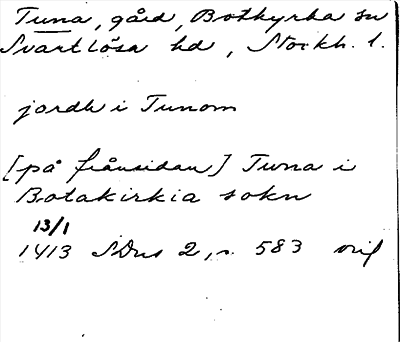 Tuna, gård, Botkyrka sn
Svartlösa hd, Stockh. l.
jordh i Tunom
[på frånsidan] Tuna i
Botakirkia sokn
13/1
1413 SDns 2, s. 583 orig